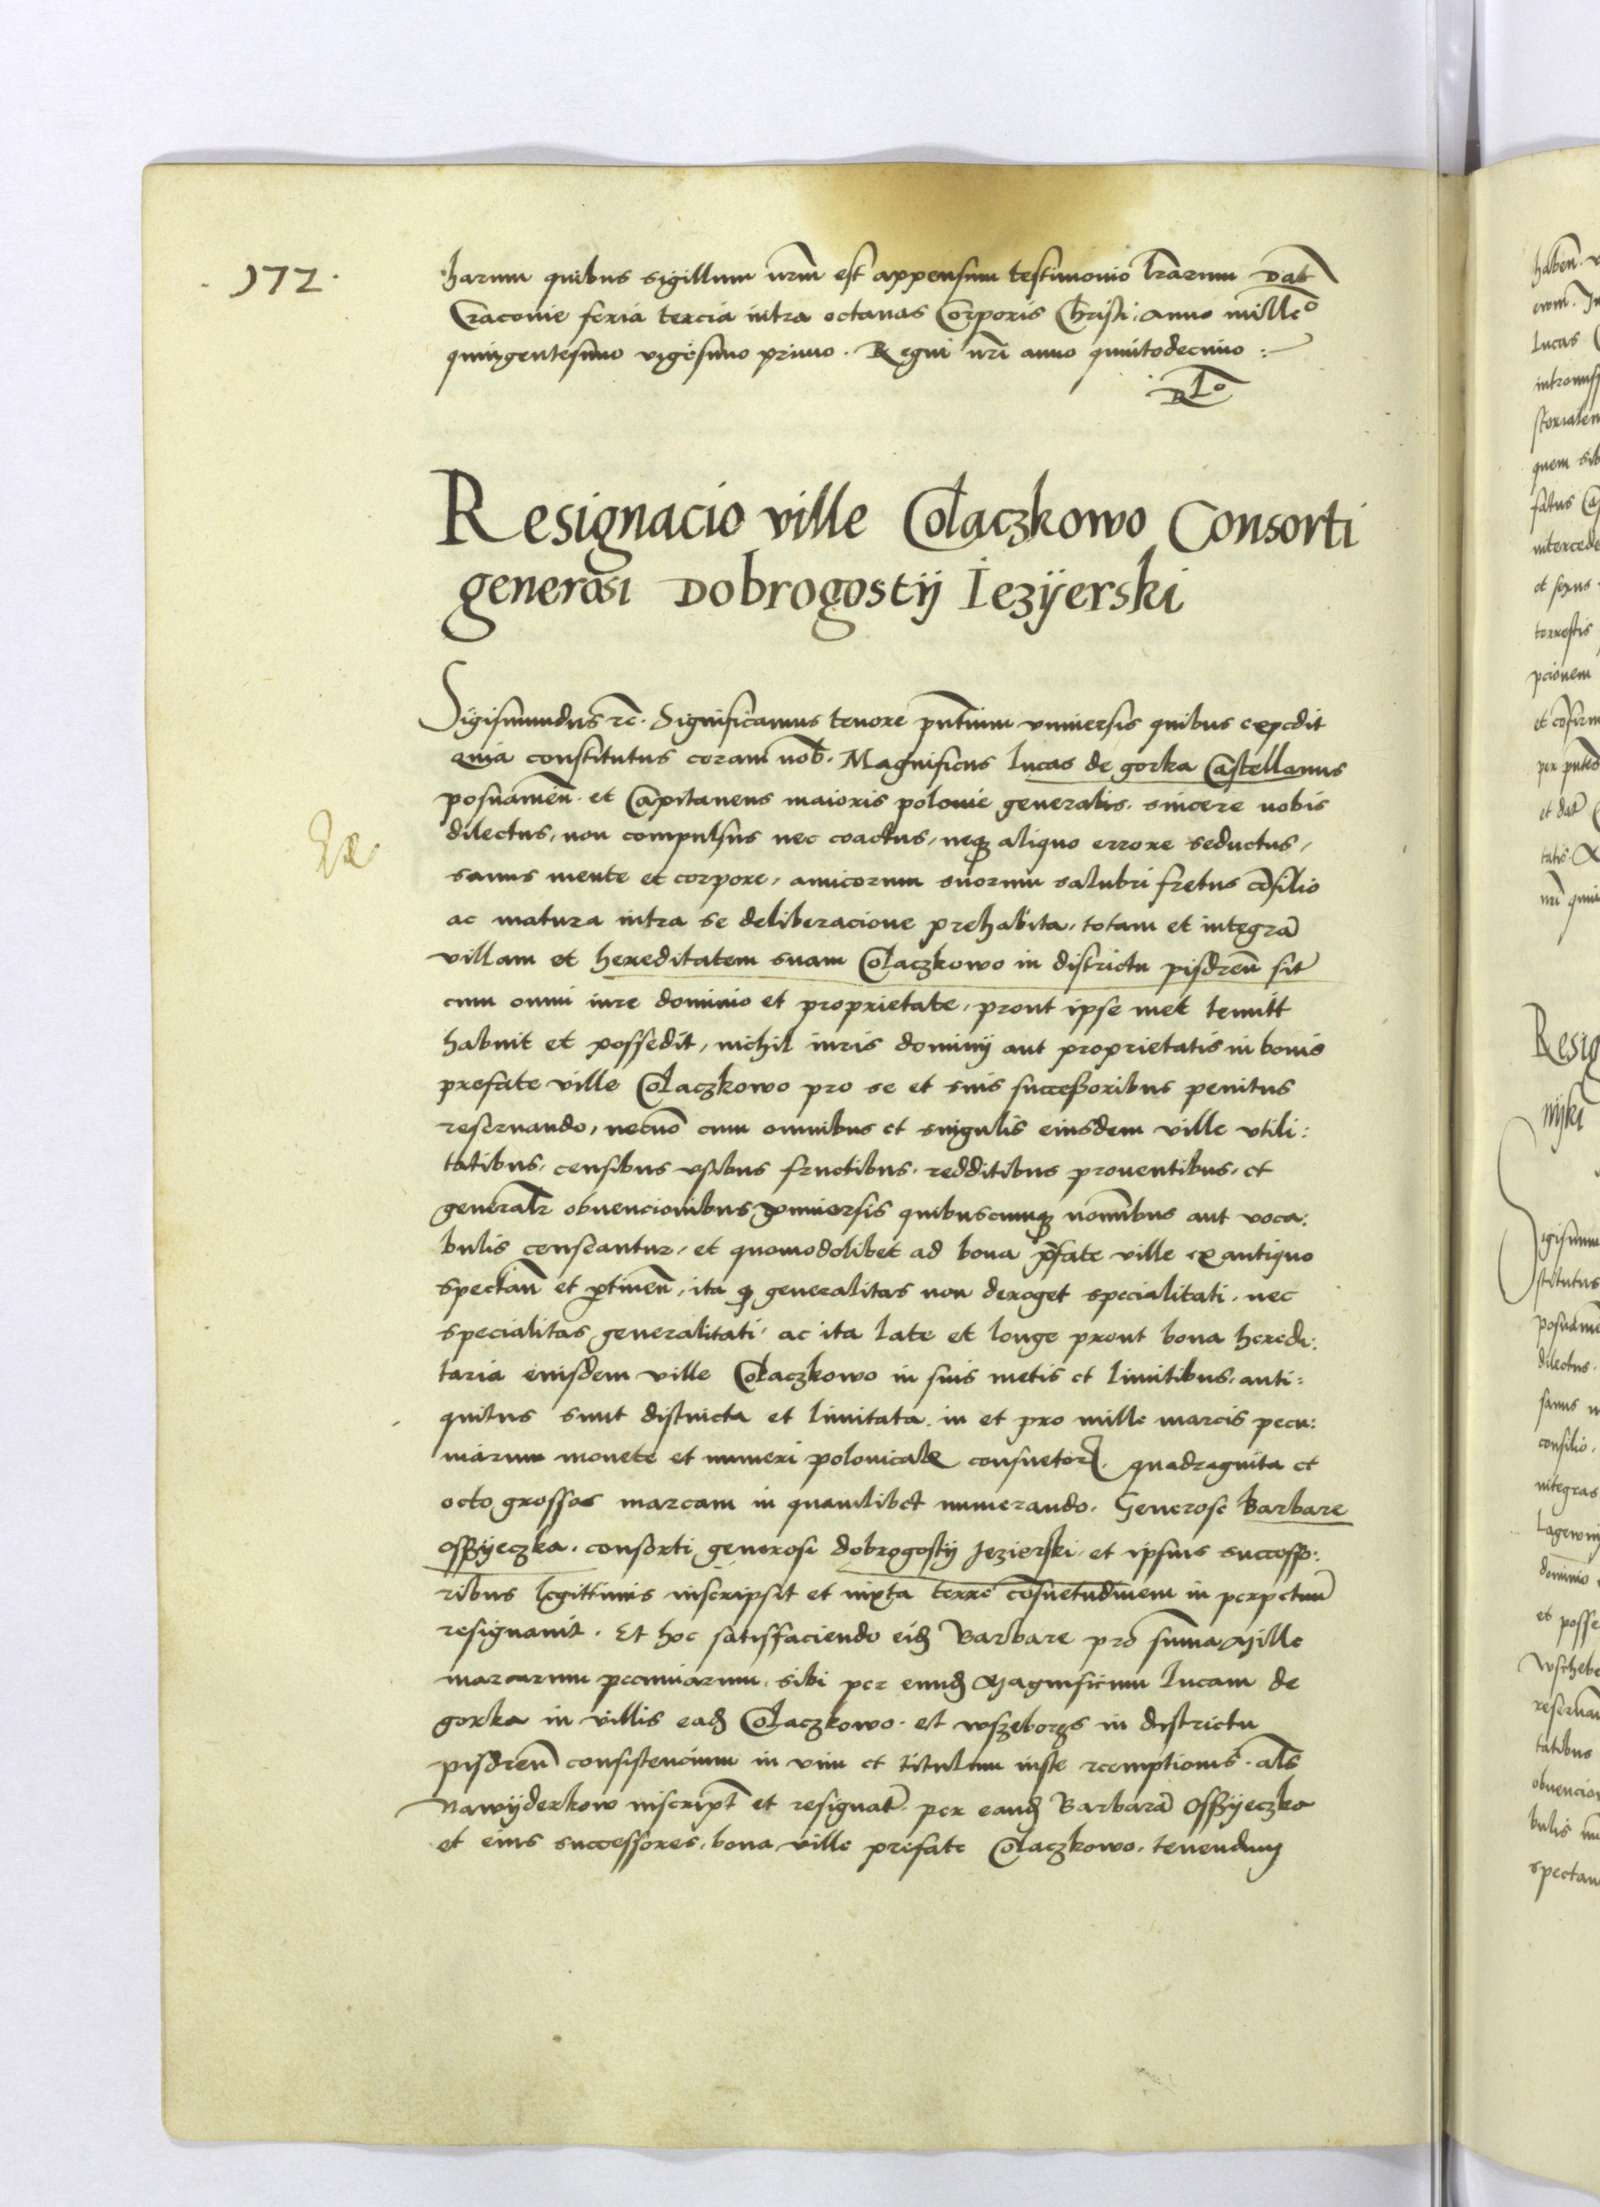 . 172 .
harum quibus sigillum nrm̃ est appensum testimonio lrarum Dat̃
Cracovie feria tercia intra octanas Corporis Christi, Anno milleo
quingentesimo vigesimo primo. Regni nrĩ anno quintodecimo :
Resignacio ville Colaczkowo Consorti
generosi Dobrogostij Iezijerski
Sigismundus rc̃. Significamus tenore pñtium vniuersis quibus expedit
Quia constitutus coram nob̃. Magnificus lucas de gorka Castellanus
posnaniẽn. et Capitaneus maioris polonie generalis. sincere nobis
dilectus, non compulsus nec coactus, neqꝫ aliquo errore seductus,
sanus mente et corpore, amicorum suorum salubri fretus cõsilio
ac matura intra se deliberacione prehabita, totam et integrã
villam et hereditatem suam Colaczkowo in districtu pisdreñ sit̃
cum omni iure dominio et proprietate, prout ipse met tenuitt
habuit et possedit, nichil iuris dominij aut proprietatis in bonis
prefate ville Colaczkowo pro se et suis successoribus penitus
reseruando, necnõ cum omnibus et singulis eiusdem ville vtili:
tatibus, censibus vsibus fructibus, redditibus prouentibus, et
generalr̃ obuencionibus vniuersis quibuscumqꝫ nominibus aut voca:
bulis censeantur, et quomodolibet ad bona p̃fate ville ex antiquo
spectañ et ꝑtineñ, ita ꝙ generalitas non deroget specialitati, nec
specialitas generalitati, ac ita late et longe prout bona heredi:
taria eiusdem ville Colaczkowo in suis metis et limitibus, anti:
quitus sunt distincta et limitata, in et pro mille marcis pecu:
niarum monete et numeri polonicalꝭ consuetoꝝ. quadraginta et
octo grossos marcam in quamlibet numerando. Generose Barbare
Ossyeczka, consorti generosi dobrogostij Jezierski, et ipsius successo:
ribus legittimis inscripsit et iuxta terre cõsuetudinem in perpetuũ
resignauit. Et hoc satisfaciendo eidꝫ Barbare pro sum̃a Mille
marcarum pecuniarum, sibi per eundꝫ Magnificum lucam de
gorka in villis eadꝫ Colaczkowo. et wszeborz in districtu
pisdreñ consistencium in vim et titulum iuste reemptionis. als̃
Nawijderkow inscript̃ et resignat̃. per eandꝫ Barbarã Ossyeczka
et eius successores, bona ville prefate Colaczkowo, tenendum